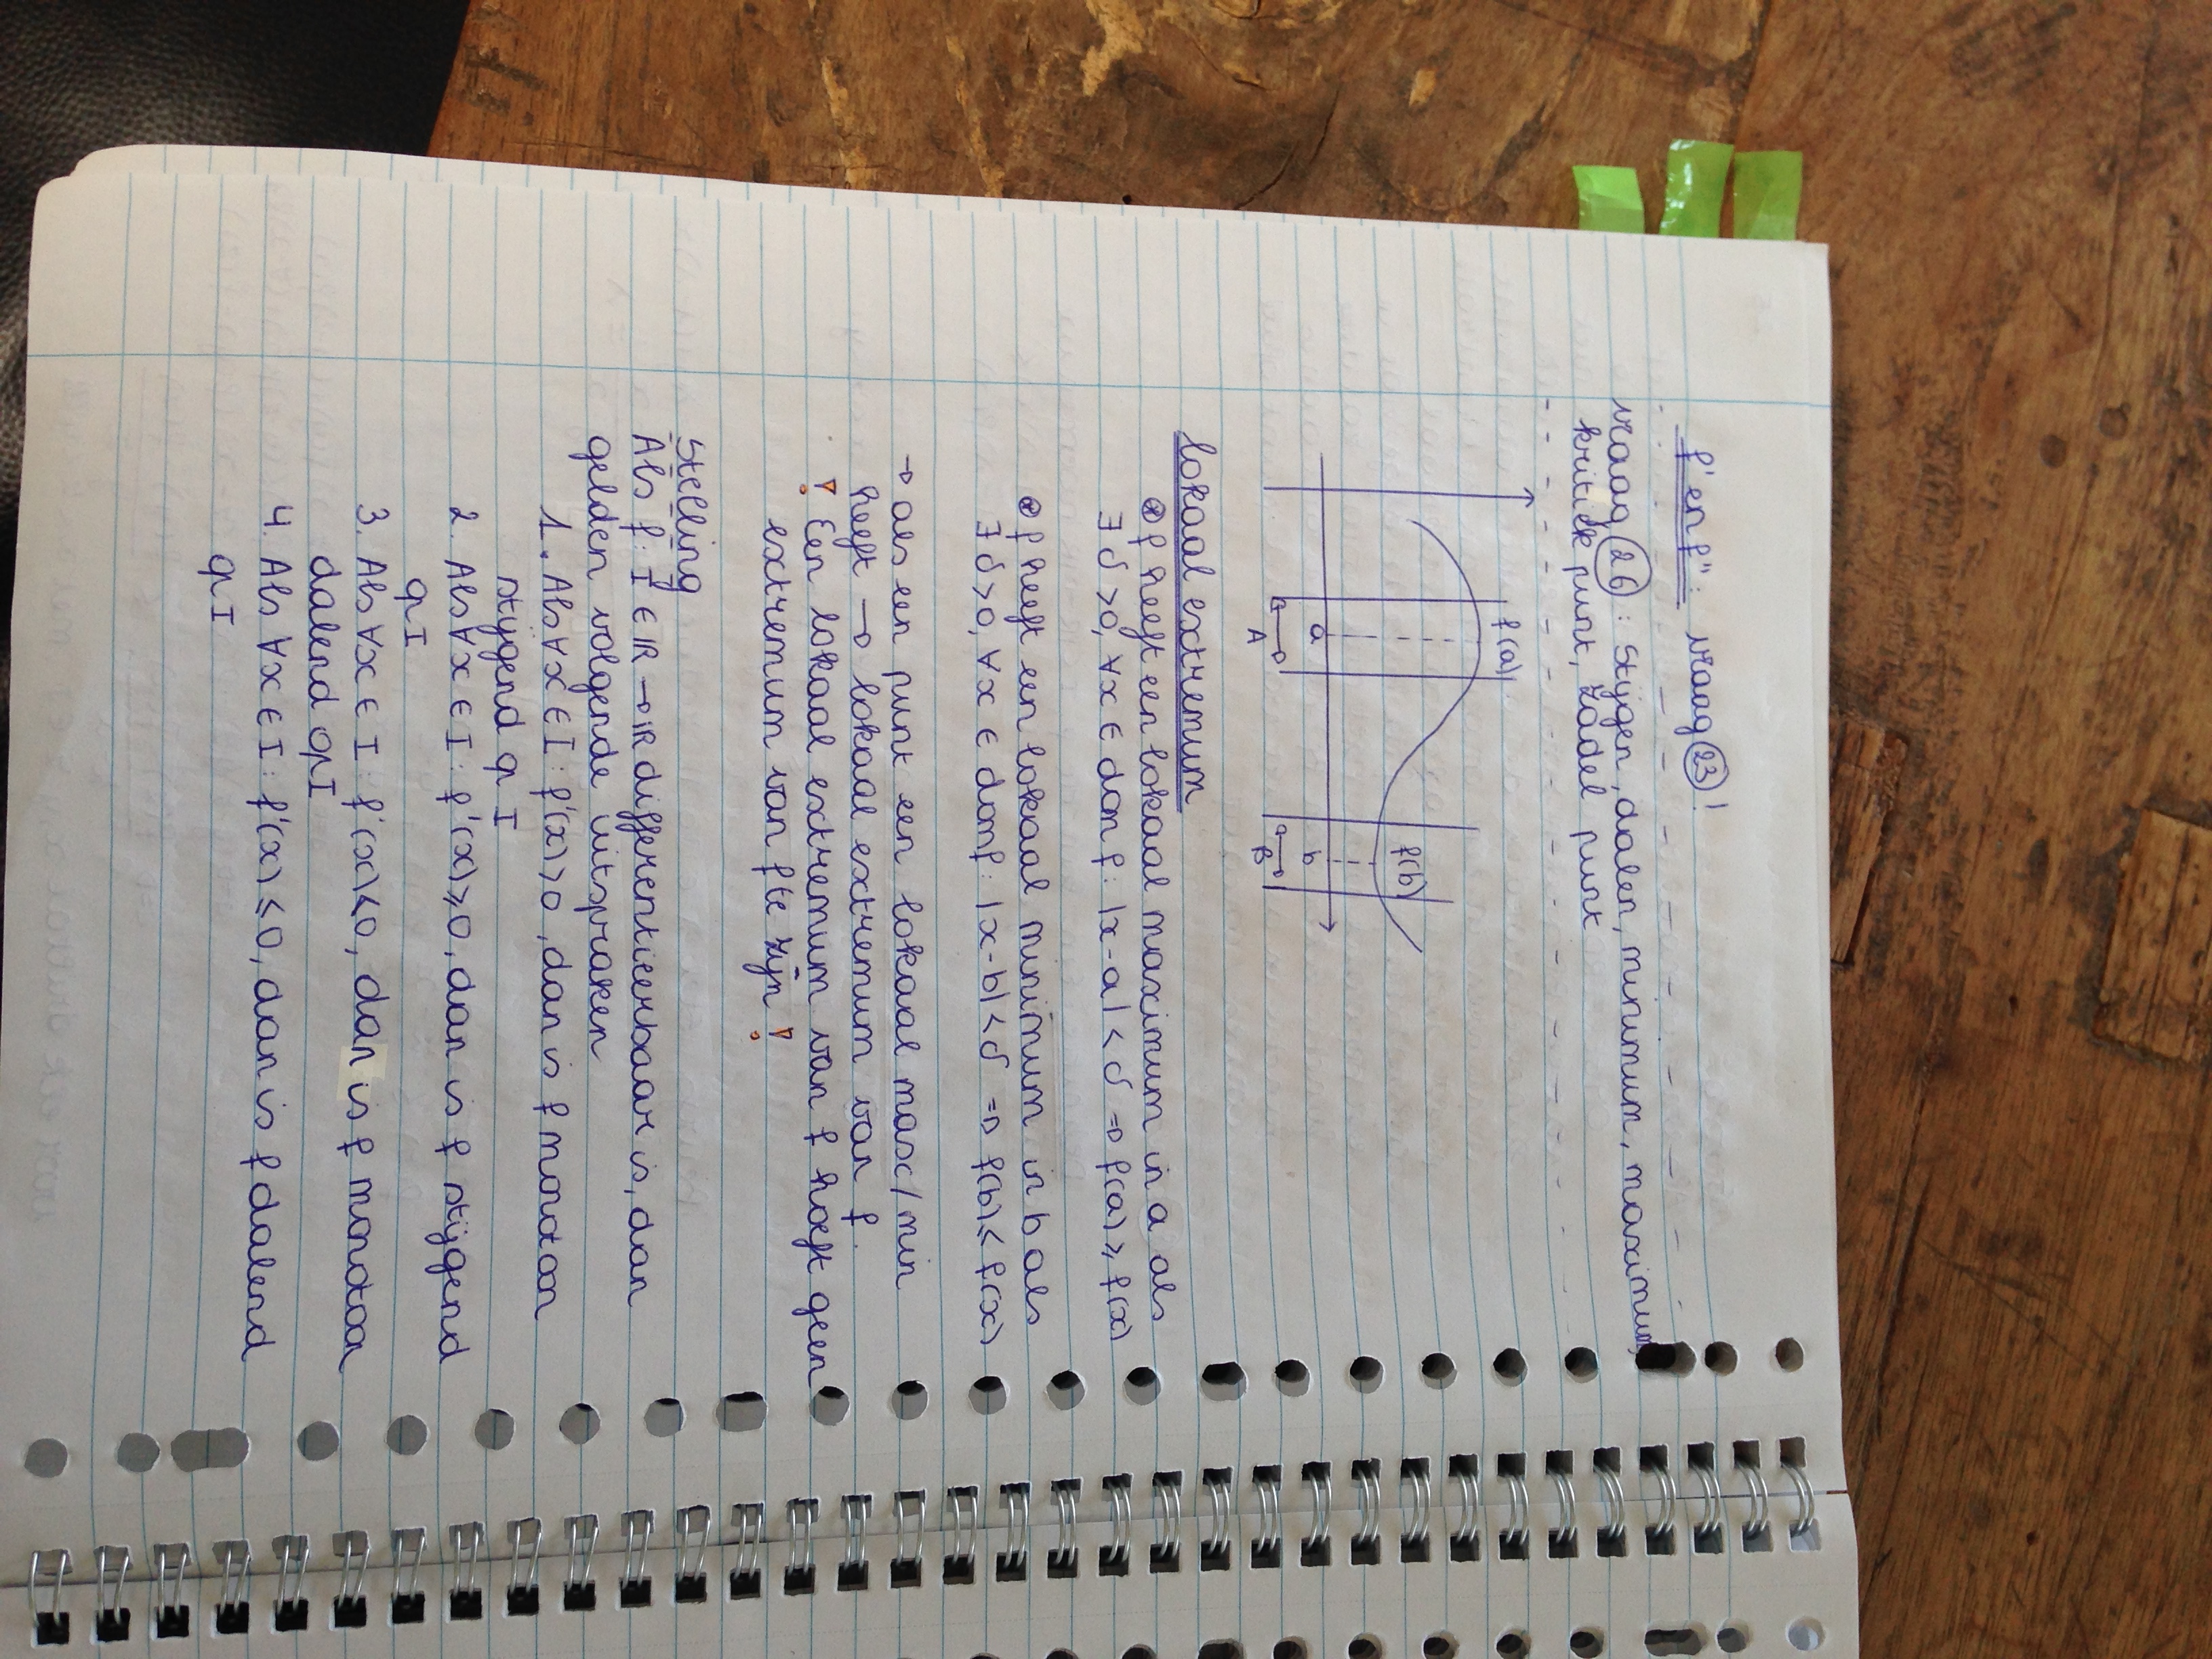 f' en f'': vraag 23!
vraag 26: Stijgen, dalen, minimum, maximum,
kritiek punt, zadel punt
f(a)
f(b)
a
b
A
B
lokaal extremum
⊛ f heeft een lokaal maximum in a als
∃ δ > 0, ∀x ∈ dom f: |x-a| < δ ⇒ f(a) ≥ f(x)
⊛ f heeft een lokaal minimum in b als
∃ δ > 0, ∀x ∈ dom f: |x-b| < δ ⇒ f(b) ≤ f(x)
→ als een punt een lokaal max/min
heeft → lokaal extremum van f.
! Een lokaal extremum van f hoeft geen
extremum van f te zijn !
Stelling
Als f: I ∈ ℝ → ℝ differentieerbaar is, dan
gelden volgende uitspraken
1. Als ∀x ∈ I: f'(x) > 0, dan is f monotoon
stijgend op I
2. Als ∀x ∈ I: f'(x) ≥ 0, dan is f stijgend
op I
3. Als ∀x ∈ I: f'(x) < 0, dan is f monotoon
dalend op I
4. Als ∀x ∈ I: f'(x) ≤ 0, dan is f dalend
op I